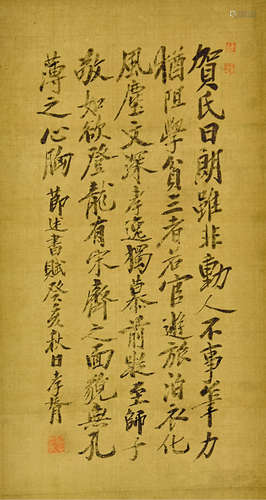 賀氏日朗雖非動人不事筆力
猶阻學貧三者若官遊旅泊衣化
風塵文深孝逸獨慕前蹤至師子
敬如欲登龍有宋齊之面貌無孔
薄之心胸 節述書賦癸亥秋日孝胥